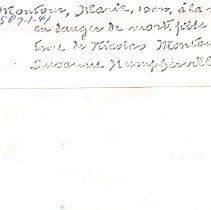 Montour, Marie, 1000, à la
587-1-41
en danger de mort, fille
de Nicolas Montou
Susanne Humpherville